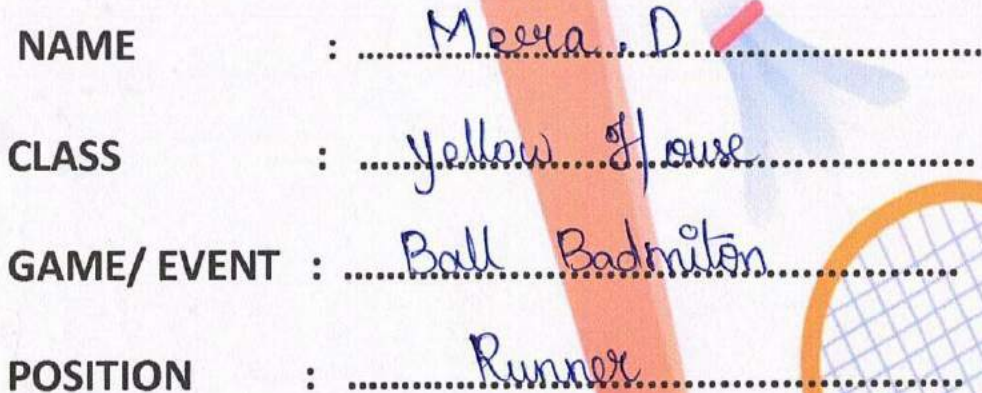 NAME : Meera . D
CLASS : Yellow House
GAME/ EVENT : Ball Badmiton
POSITION : Runner